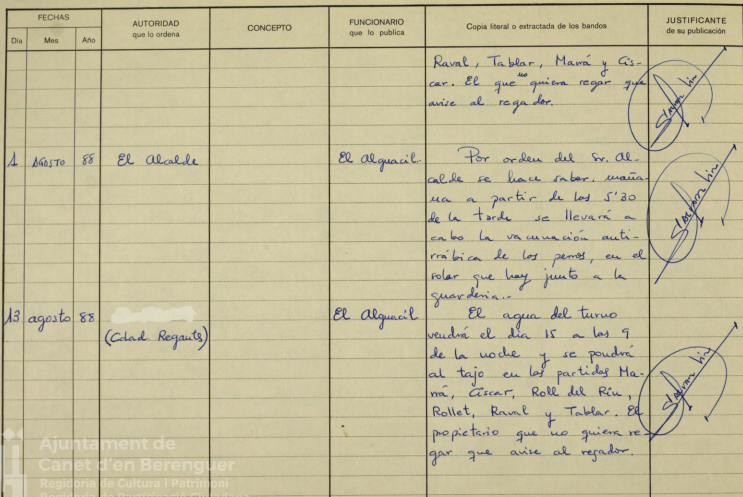 FECHAS
Día Mes Año
AUTORIDAD
que lo ordena
CONCEPTO
FUNCIONARIO
que lo publica
Copia literal o extractada de los bandos
JUSTIFICANTE
de su publicación
Raval, Tablar, Marrá y Cis-
car. El que no quiera regar que
avise al regador.
1 AGOSTO 88 El Alcalde El Alguacil.
Por orden del Sr. Al-
calde se hace saber, maña-
na a partir de las 5'30
de la tarde se llevará a
cabo la vacunación anti-
rrábica de los perros, en el
solar que hay junto a la
guardería.-
13 agosto 88 (Cdad Regants) El Alguacil
El agua del turno
vendrá el día 15 a las 9
de la noche y se pondrá
al tajo en las partidas Ma-
rrá, Ciscar, Roll del Riu,
Rollet, Raval y Tablar. El
propietario que no quiera re-
gar que avise al regador.
Ajuntament de
Canet d'en Berenguer
Regidoria de Cultura i Patrimoni